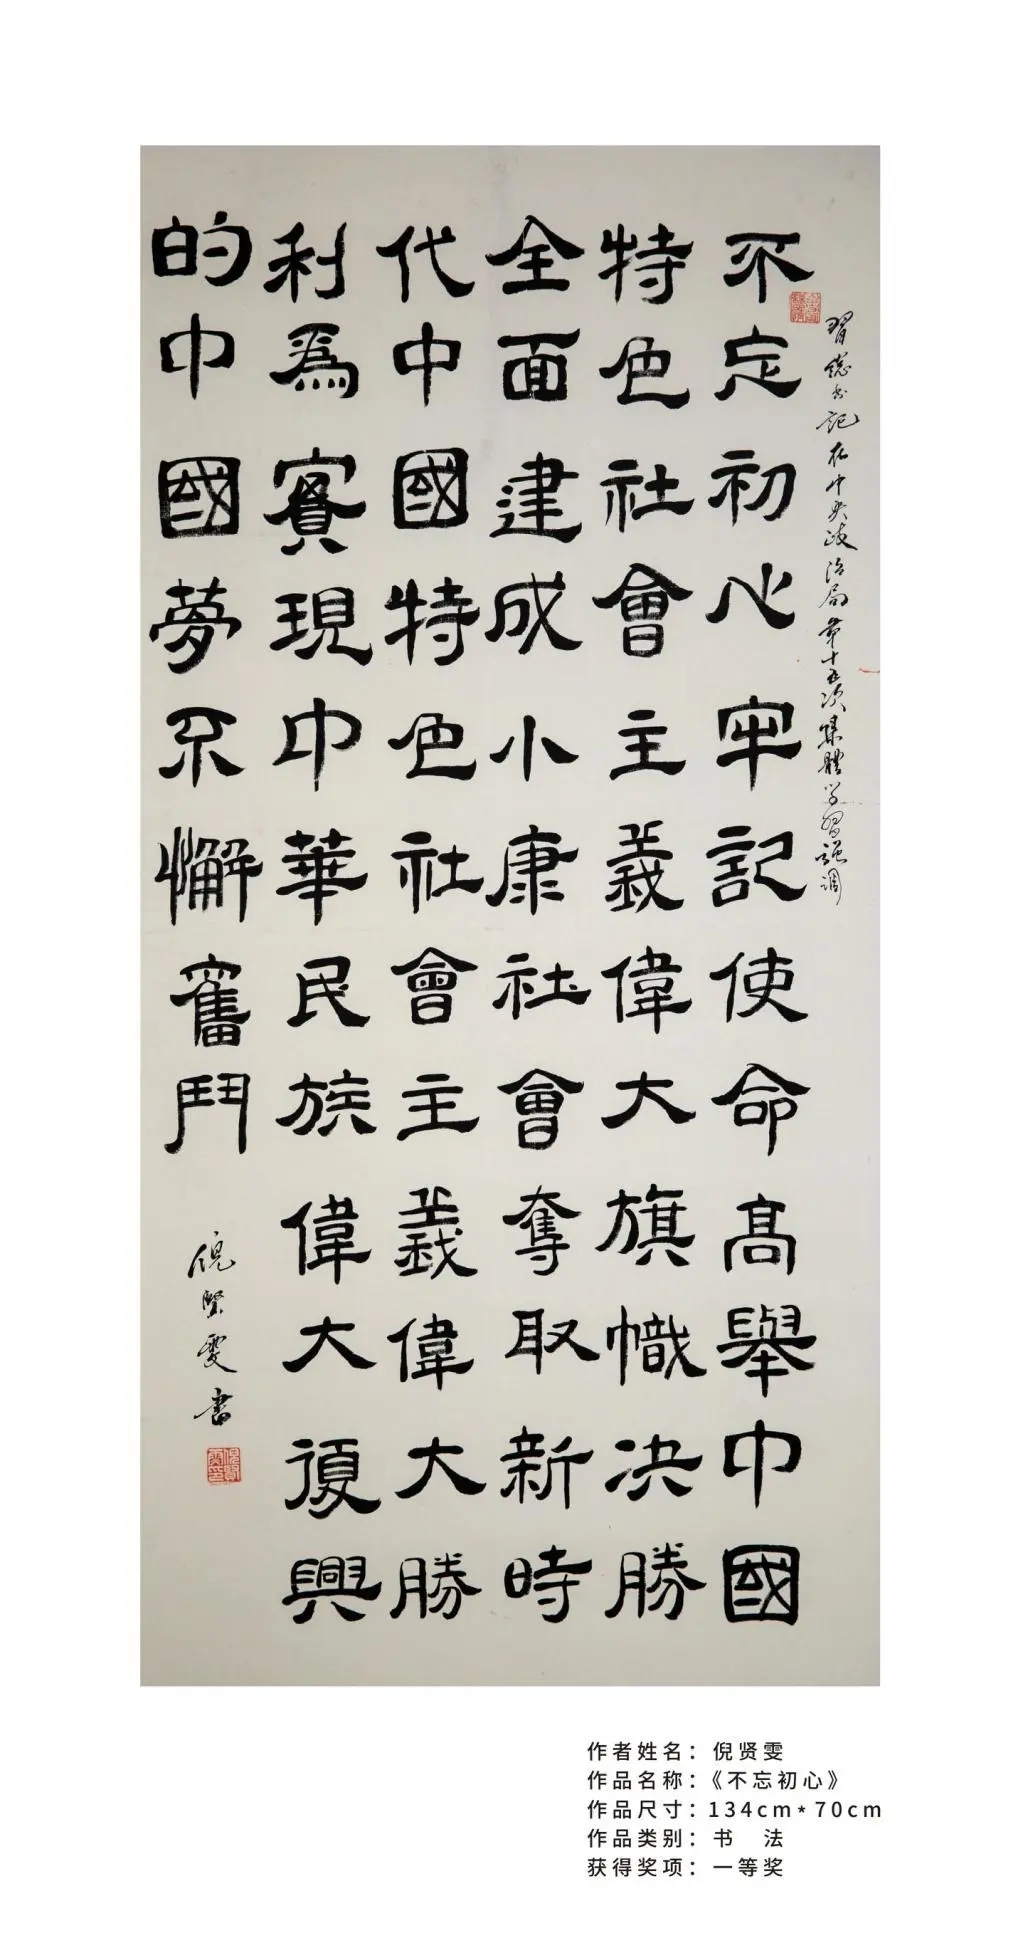 習總书記在中央政治局第十五次集體学習强調
不忘初心牢記使命髙舉中國
特色社會主義偉大旗幟决勝
全面建成小康社會奪取新時
代中國特色社會主義偉大勝
利爲實現中華民族偉大復興
的中國夢不懈奮鬥
倪賢雯書
作者姓名：倪贤雯
作品名称：《不忘初心》
作品尺寸：134cm*70cm
作品类别：书 法
获得奖项：一等奖